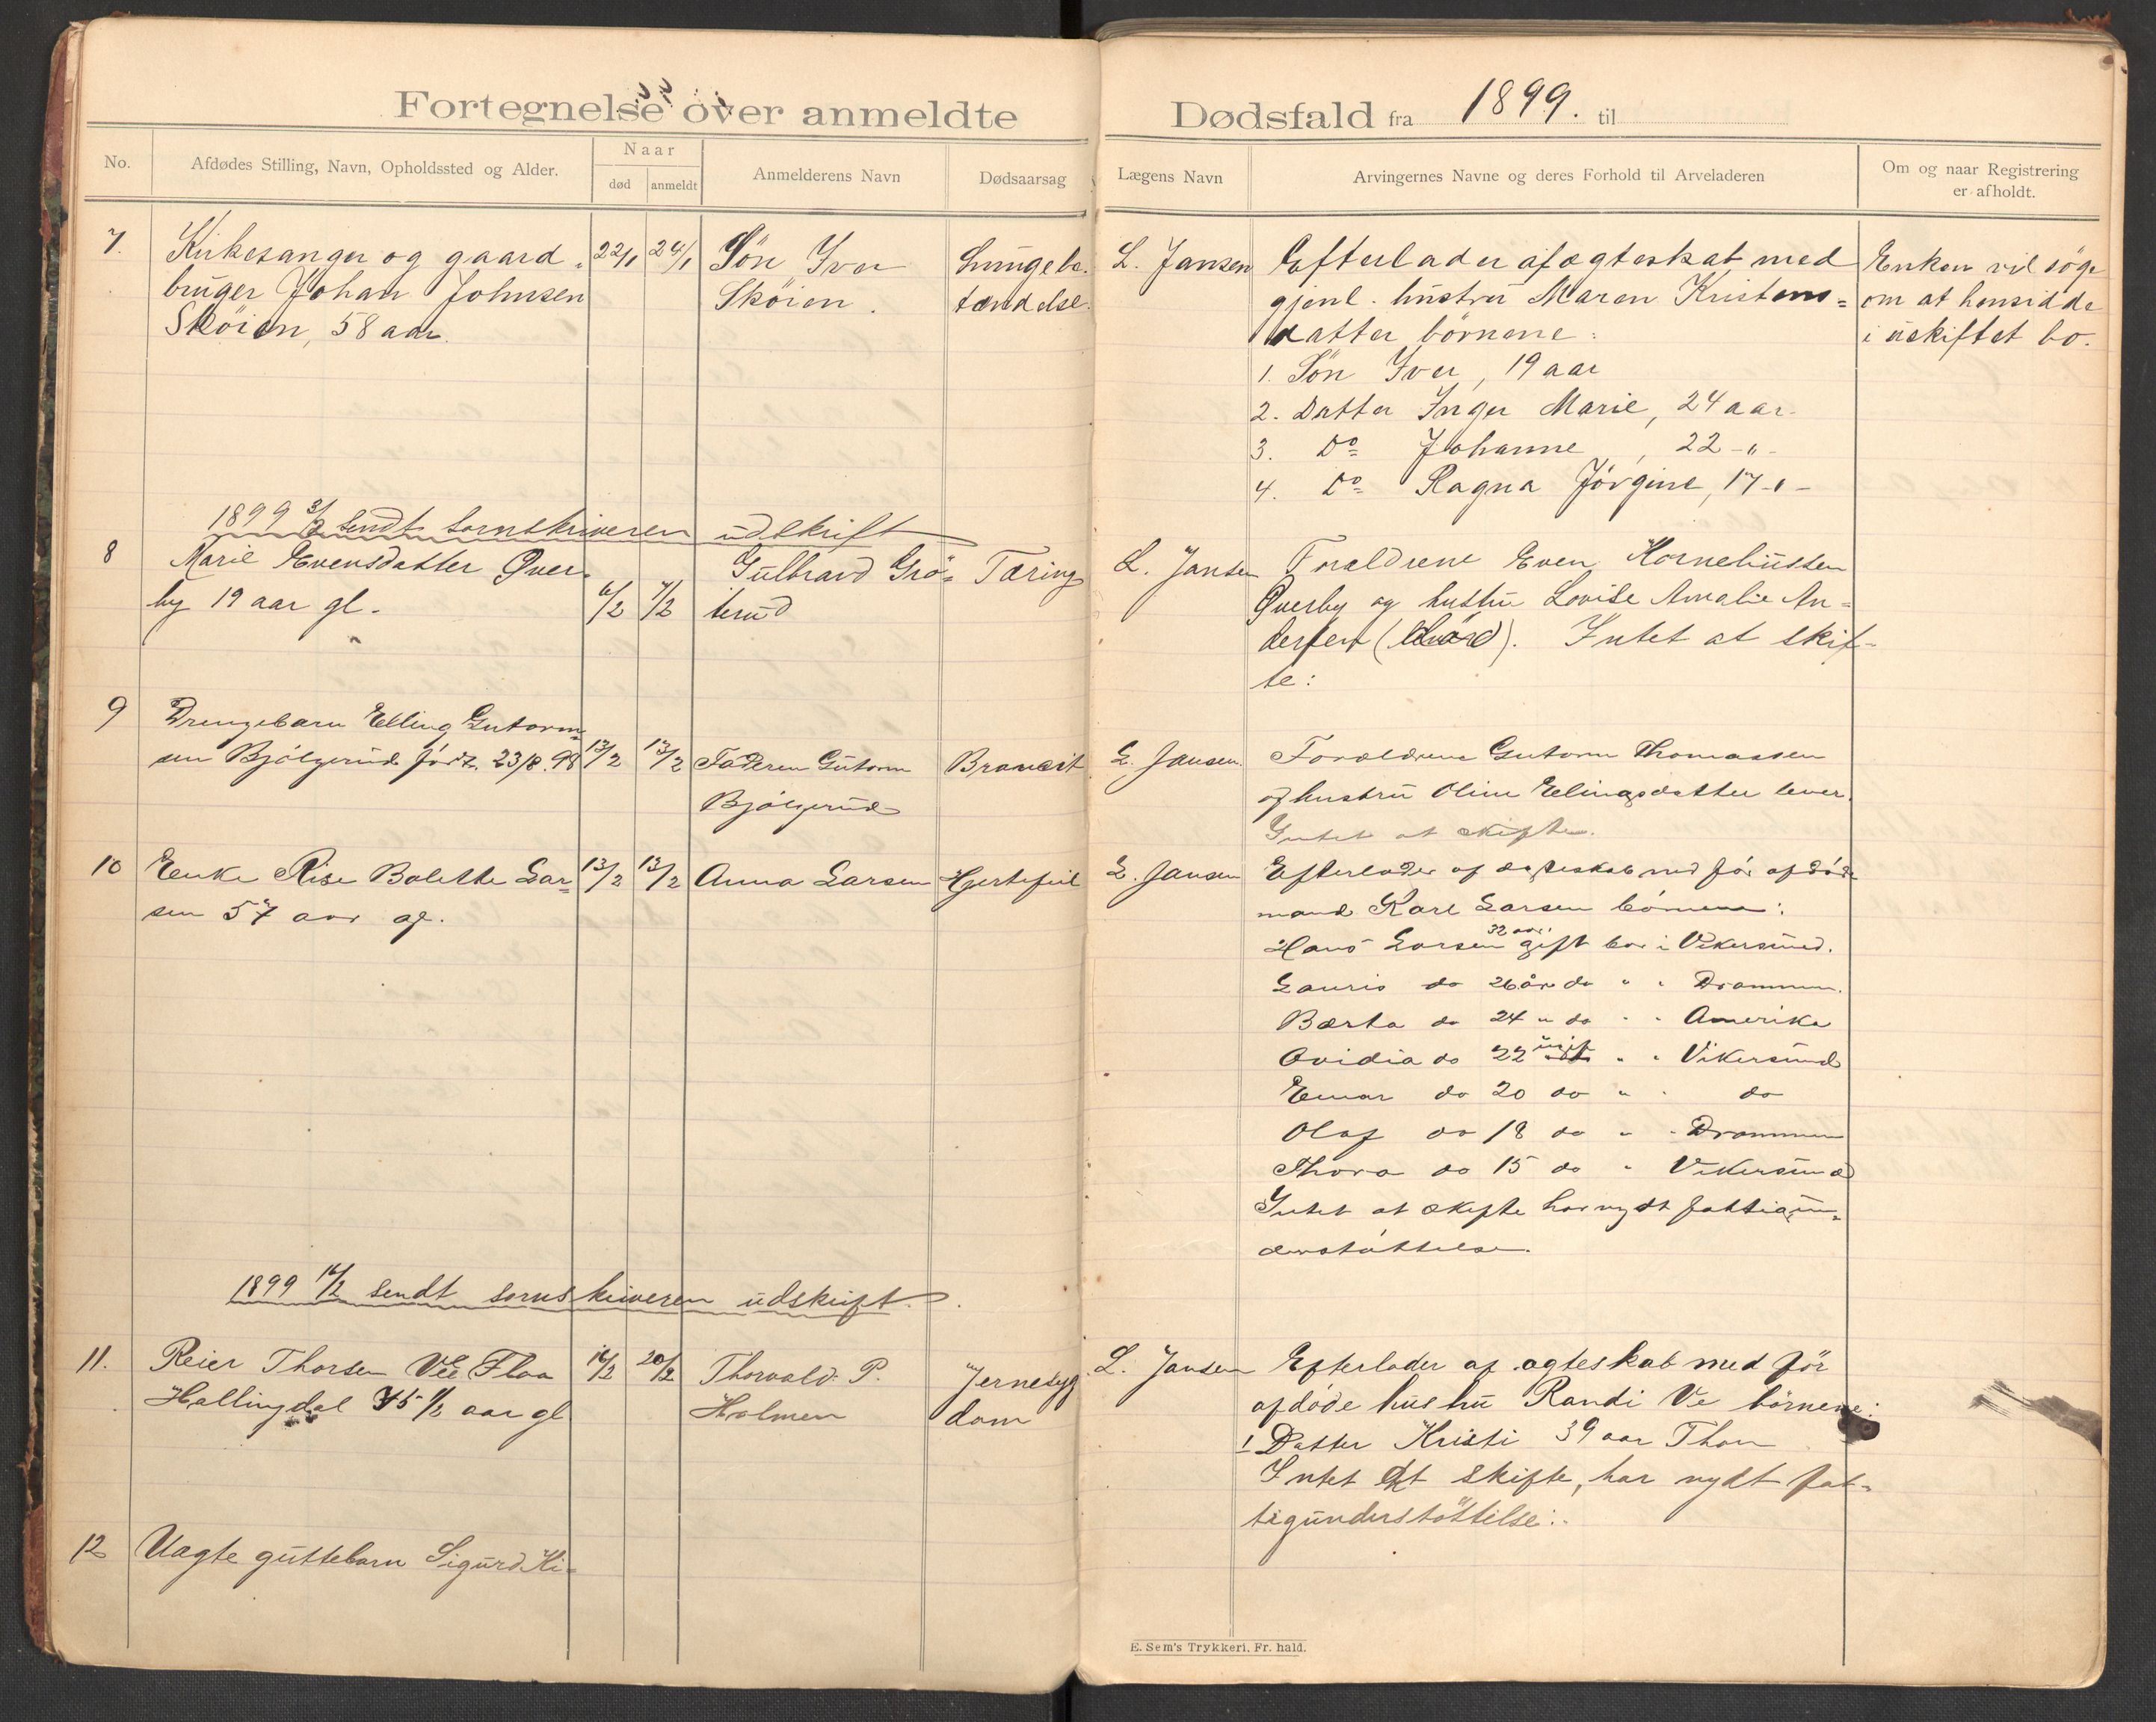 Fortegnelse over anmeldte Dødsfald fra 1899. til
No.
Afdødes Stilling, Navn, Opholdssted og Alder.
Naar
død
anmeldt
Anmelderens Navn
Dødsaarsag
Lægens Navn
Arvingernes Navne og deres Forhold til Arveladeren
Om og naar Registrering
er afholdt.
7.
Kirkesanger og gaard-
bruger Johan Johnsen
Sköien, 58 aar.
22/1
24/1
Sön Iver
Sköien.
Lungebe-
tændelse.
L. Jansen
Efterlader af ægteskab med
gjenl. hustru Maren Kristens=
datter börnene:
1. Sön Iver, 19 aar
2. Datter Inger Marie, 24 aar
3. Do Johanne, 22 -"-
4. Do Ragna Jörgine, 17 -"-
Enken vil söge
om at hensidde
i uskiftet bo.
1899 3/2 sendt sornskriveren udskrift
8
Marie Evensdatter Över-
by 19 aar gl.
6/2
7/2
Gulbrand Grö=
terud
Tæring
L. Jansen
Forældrene Even Korneliussen
Överby og hustru Lovise Amalie An=
dersen. Intet at skif-
te:
9
Drengebarn Elling Gutorm=
sen Bjölgerud født 23/8.98
13/2
13/2
Faderen Gutorm
Bjölgerud
Bronkit
L. Jansen.
Forældrene Gutorm Thomassen
og hustru Oline Ellingsdatter lever.
Intet at skifte.
10
Enke Rise Bolette Lar=
sen 57 aar gl.
13/2
13/2
Anna Larsen
Hjertefeil
L. Jansen
Efterlader af ægteskab med för afdöde
mand Karl Larsen börnene:
Hans Larsen 32 aar gift bor i Vikersund.
Lauris do 26 år do " " Drammen.
Bærta do 24 " do " " Amerika
Ovidia do 22 ugift " " Vikersund
Einar do 20 do " " do
Olaf do 18 do " " Drammen
Thora do 15 do " Vikersund
Intet at skifte har nydt fattigun=
derstöttelse.
1899 16/2 sendt sornskriveren udskrift.
11.
Reier Thorsen Vee Flaa
Hallingdal 75 1/2 aar gl
16/2
20/2
Thorvald P.
Holmen
Jernesyg
dom
L. Jansen
Efterlader af ægteskab med för
afdöde hustru Randi Ve börnene:
1 Datter Kristi 39 aar Thon
Intet at skifte, har nydt fat=
tigunderstöttelse:.
12
Uægte guttebarn Sigurd Ki=
E. Sem's Trykkeri, Fr. hald.